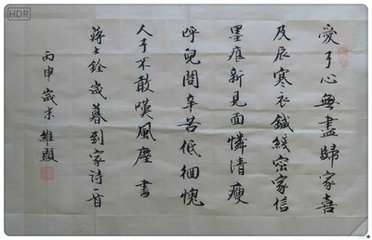 愛子心無盡歸家喜
及辰寒衣鍼綫密家信
墨痕新見面憐清瘦
呼兒問辛苦低徊愧
人子不敢嘆風塵書
蔣士銓歲暮到家詩一首
丙申歲末維題
HDR